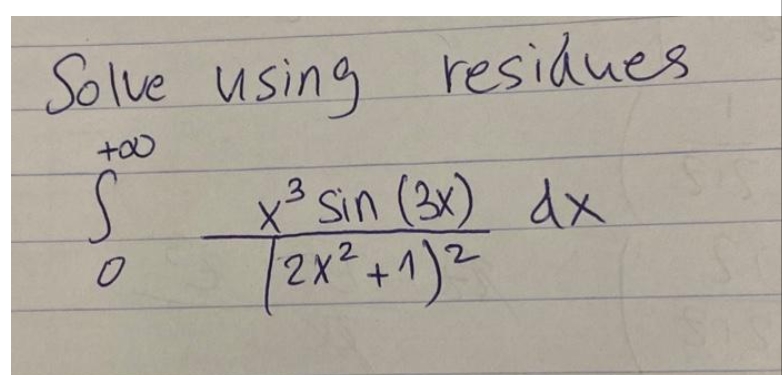 Solve using residues
+∞
∫ x³ sin (3x) dx
0 (2x² + 1)²